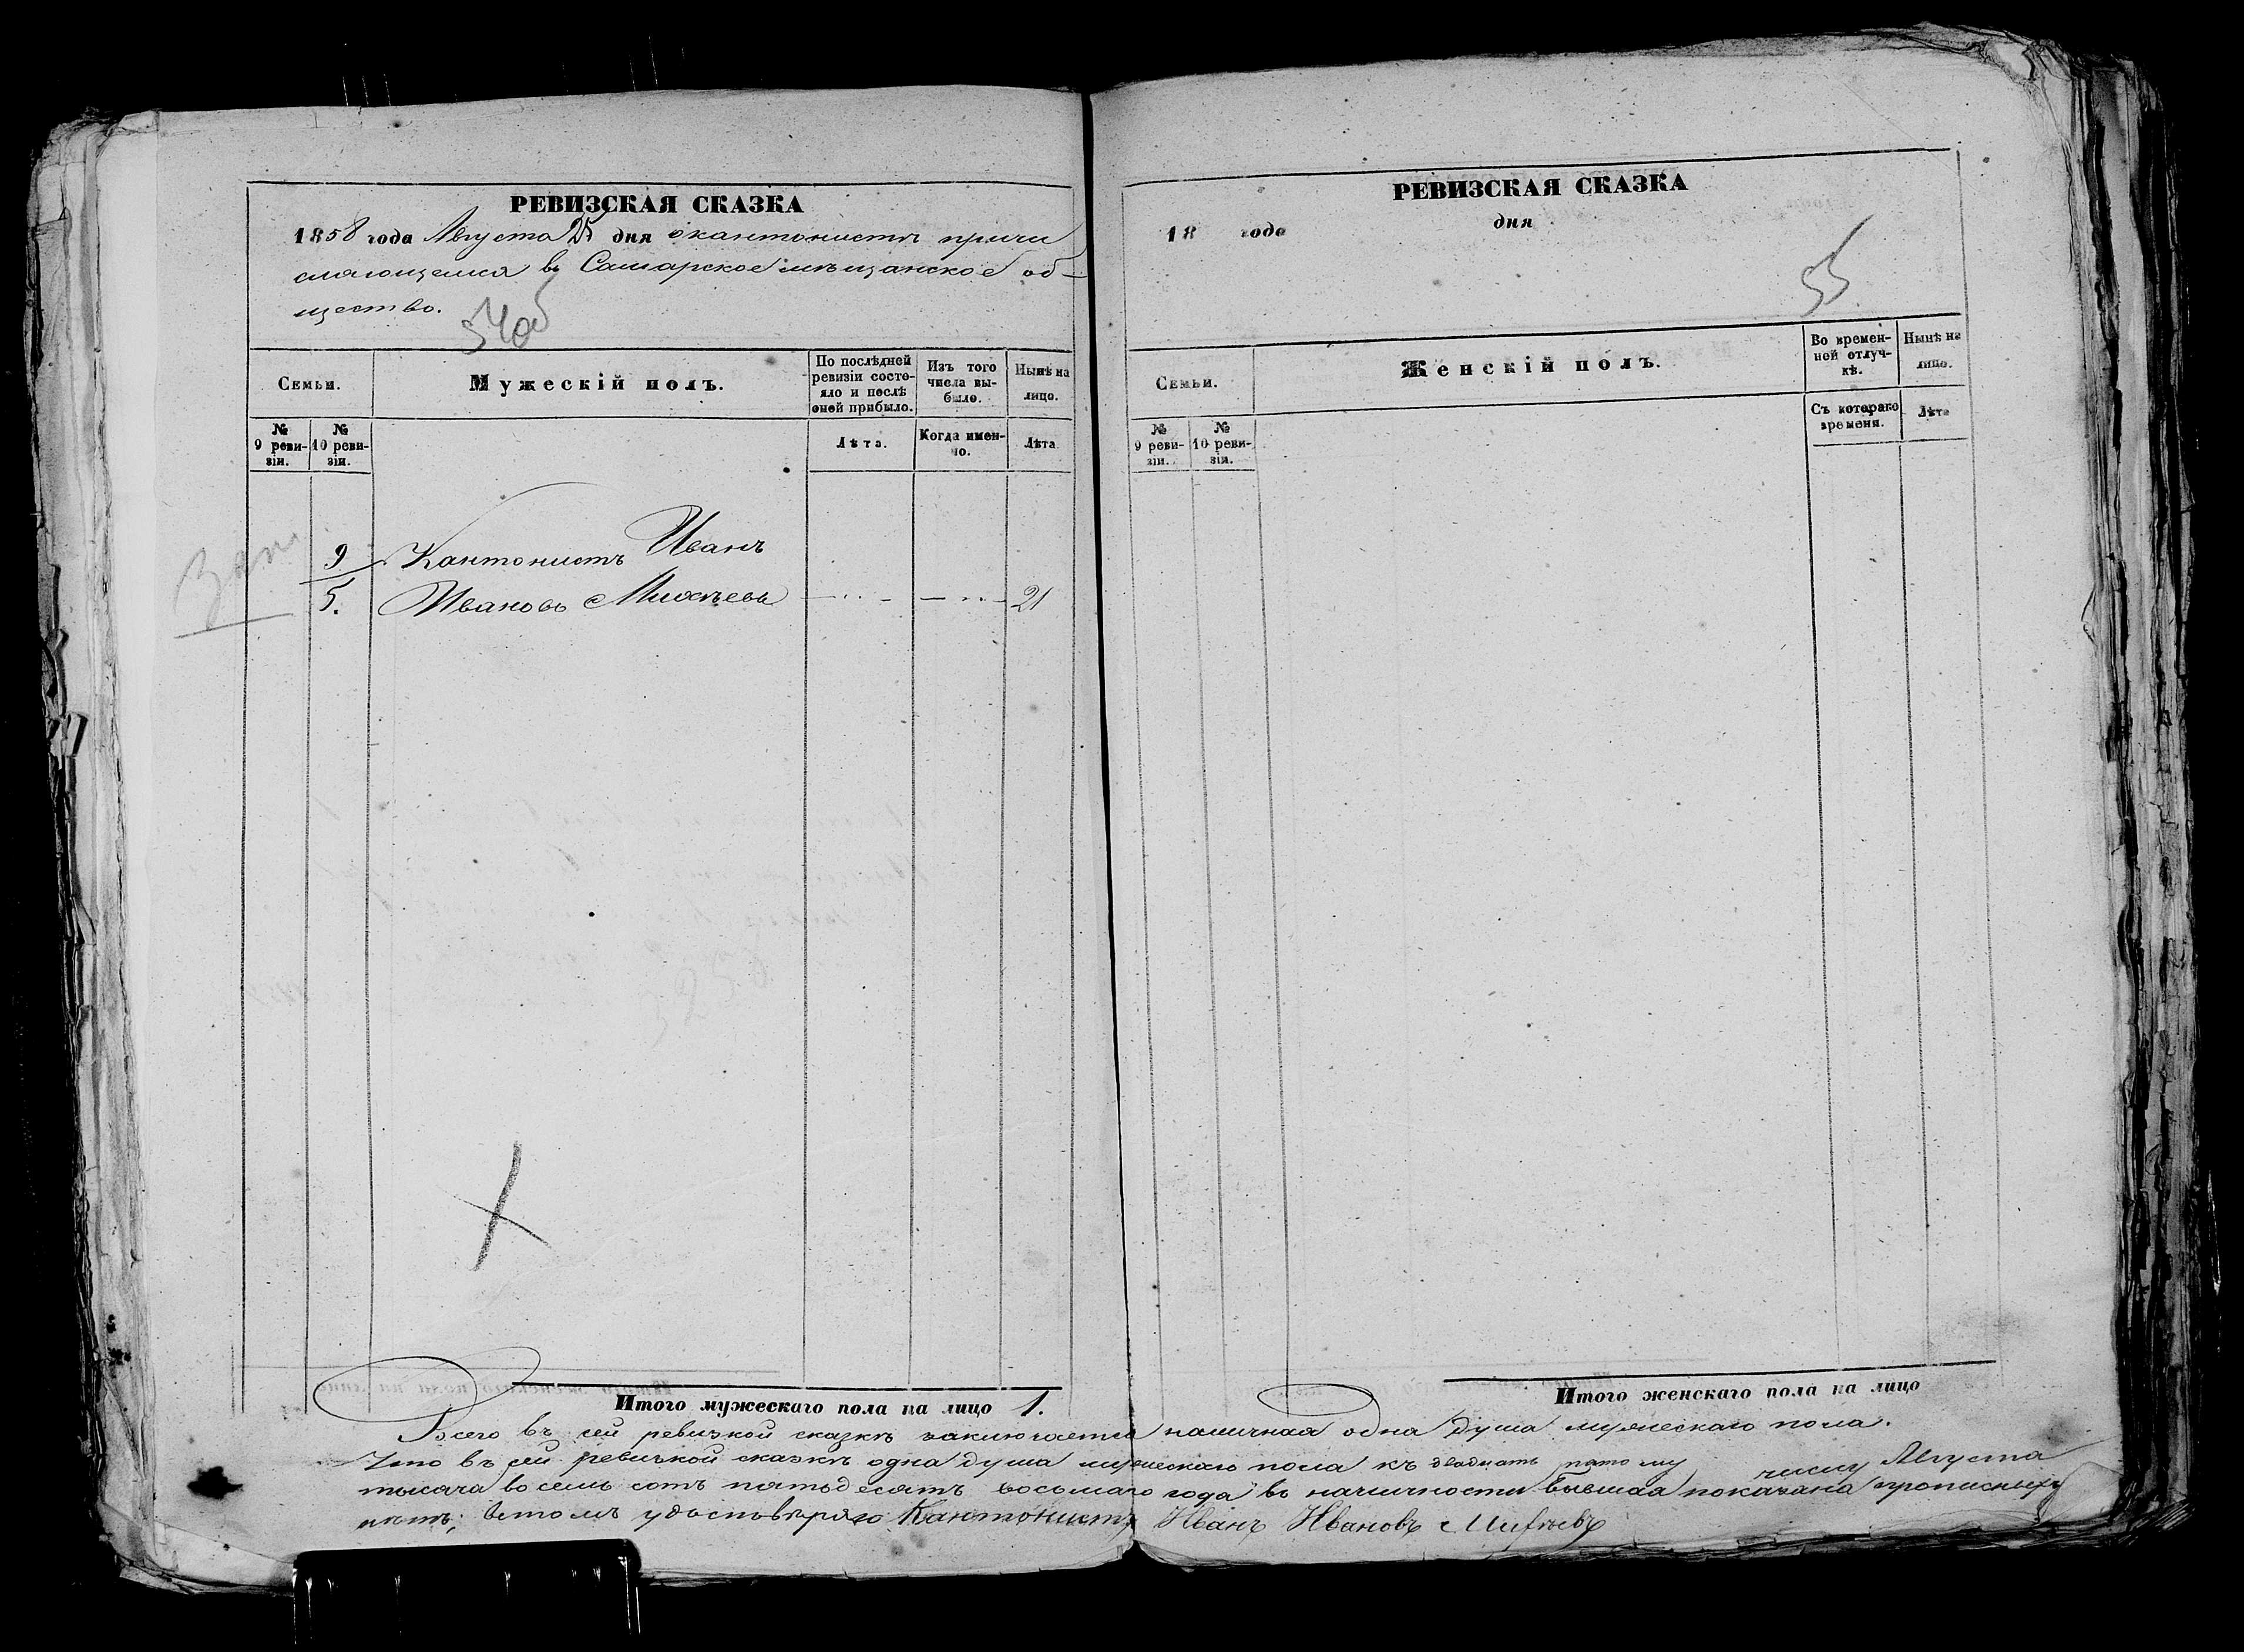 РЕВИЗСКАЯ СКАЗКА
1858 года Августа 25 дня о кантонистѣ причи
сляющемся въ Самарское мѣщанское об-
щество.
54об
Семьи.
Мужескій полъ.
По послѣдней ревизіи состояло и послѣ оной прибыло.
Изъ того числа выбыло.
Нынѣ на лицо.
№ 9 ревизіи.
№ 10 ревизіи.
Лѣта.
Когда именно.
Лѣта
9 Кантонистъ Иванъ
5. Ивановъ 21
Итого мужескаго пола на лицо 1.
РЕВИЗСКАЯ СКАЗКА
18 года дня
55
Семьи.
Женскій полъ.
Во временной отлучкѣ.
Нынѣ на лицо.
№ 9 ревизіи.
№ 10 ревизіи.
Съ котораго времени.
Лѣта
Итого женскаго пола на лицо
Всего въ сей ревизкой сказкѣ заключается наличная одна душа мужескаго пола.
Что въ сей ревизкой сказкѣ одна душа мужескаго пола къ двадцать пятому числу Августа
тысяча восемь сотъ пятьдесятъ восьмаго года въ наличности бывшая показана прописныхъ
нѣтъ; въ томъ удостовѣряю Кантонистъ Иванъ Ивановъ